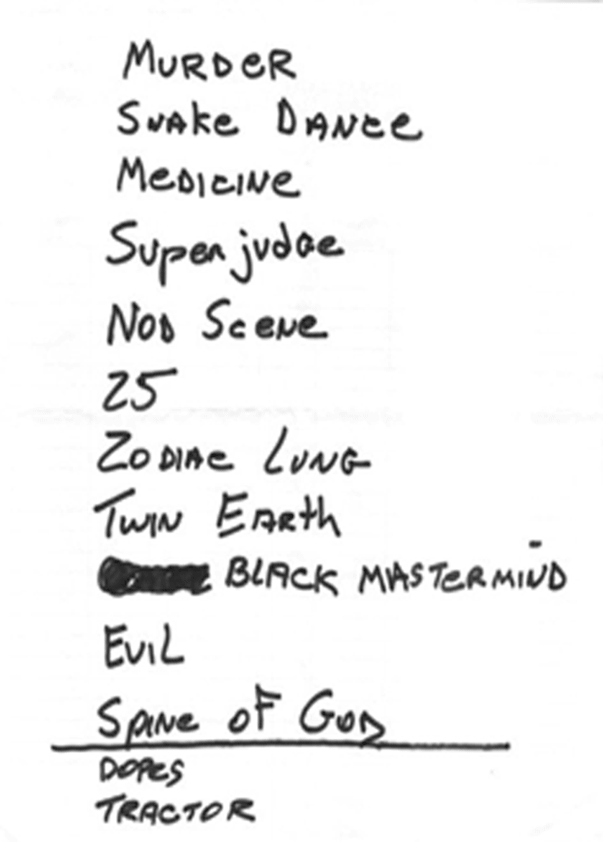 Murder
Snake Dance
Medicine
Superjudge
Nod Scene
25
Zodiac Lung
Twin Earth
BLACK MASTERMIND
Evil
Spine of God
DOPES
TRACTOR